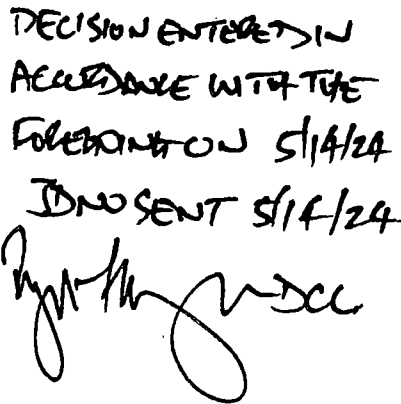 DECISION ENTERED IN
ACCORDANCE WITH THE
FOREGOING ON 5/14/24
JDNO SENT 5/14/24
DCC